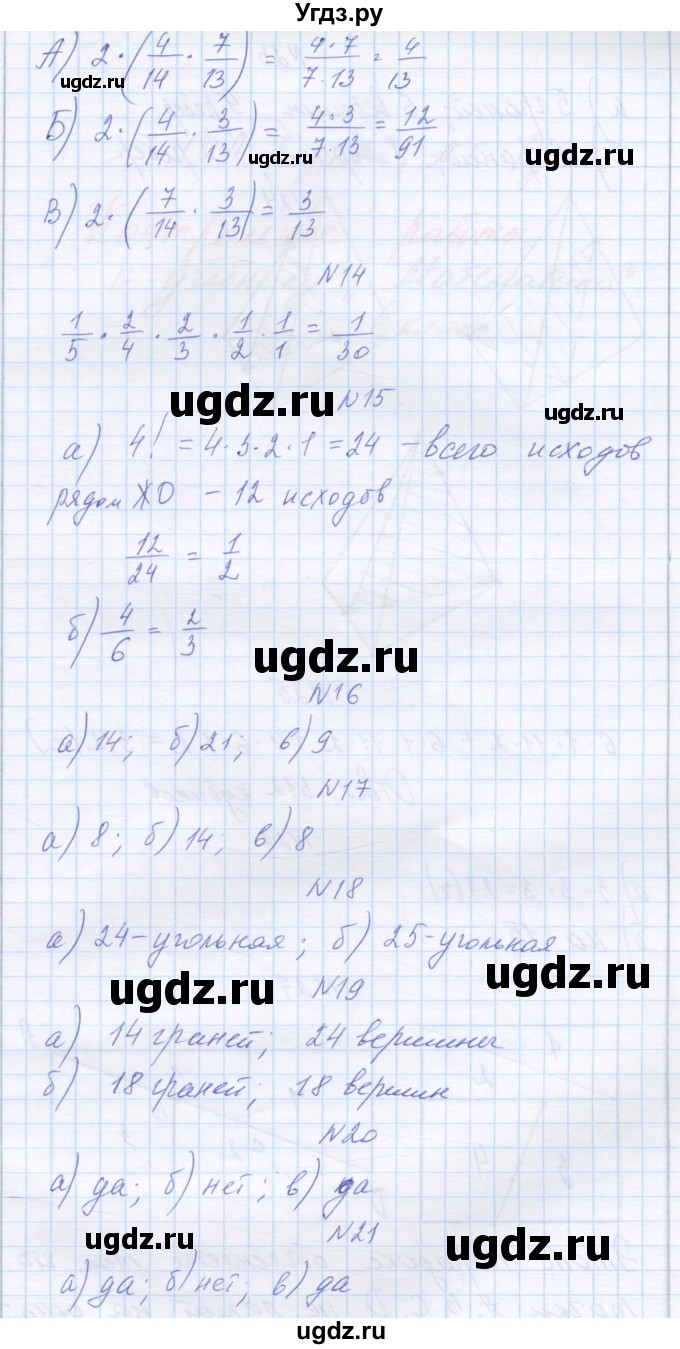 Угдз.ру
А) 2·(4/14 · 7/13) = 4·7/7·13 = 4/13
ugdz.ru
Б) 2·(4/14 · 3/13) = 4·3/7·13 = 12/91
ugdz.ru
В) 2·(7/14 · 3/13) = 3/13
N14
1/5 · 2/4 · 2/3 · 1/2 · 1/1 = 1/30
ugdz.ru
N15
ugdz.ru
а) 4! = 4·3·2·1 = 24 – всего исходов
рядом ЖО – 12 исходов
12/24 = 1/2
б) 4/6 = 2/3
ugdz.ru
N16
а) 14; б) 21; в) 9
N17
а) 8; б) 14; в) 8
N18
а) 24-угольная; б) 25-угольная
ugdz.ru
ugdz.ru
N19
а) 14 граней; 24 вершины
б) 18 граней; 18 вершин
N20
а) да; б) нет; в) да
N21
ugdz.ru
ugdz.ru
а) да; б) нет; в) да
ugdz.ru